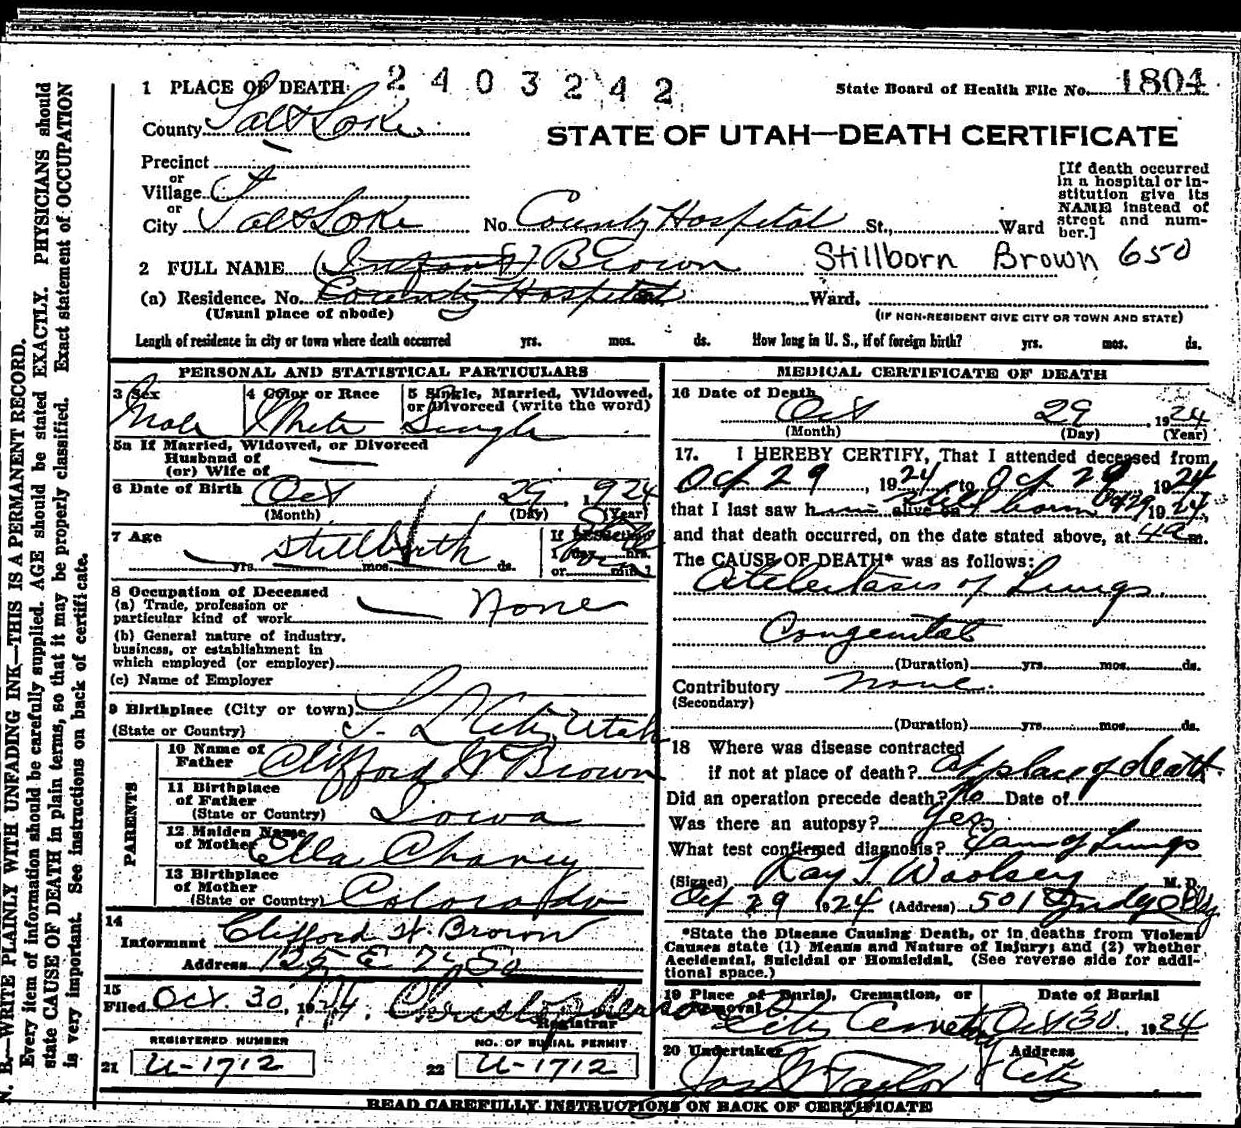 2403242
1 PLACE OF DEATH State Board of Health File No. 1804
County Salt Lake
STATE OF UTAH—DEATH CERTIFICATE
Precinct
or
Village
or
City Salt Lake No. County Hospital St., Ward
[If death occurred in a hospital or institution give its NAME instead of street and number.]
2 FULL NAME (Infant) Brown Stillborn Brown 650
(a) Residence. No. County Hospital Ward.
(Usual place of abode) (IF NON-RESIDENT GIVE CITY OR TOWN AND STATE)
Length of residence in city or town where death occurred yrs. mos. ds. How long in U. S., if of foreign birth? yrs. mos. ds.
PERSONAL AND STATISTICAL PARTICULARS
3 Sex 4 Color or Race 5 Single, Married, Widowed, or Divorced (write the word)
Male White Single
5a If Married, Widowed, or Divorced
Husband of
(or) Wife of
6 Date of Birth Oct 29, 1924
(Month) (Day) (Year)
7 Age Stillbirth
yrs. mos. ds. If less than 1 day hrs. or min.
8 Occupation of Deceased
(a) Trade, profession or
particular kind of work None
(b) General nature of industry,
business, or establishment in
which employed (or employer)
(c) Name of Employer
9 Birthplace (City or town)
(State or Country) S. L. City, Utah
PARENTS
10 Name of Father Clifford W Brown
11 Birthplace of Father
(State or Country) Iowa
12 Maiden Name of Mother Ella Chaney
13 Birthplace of Mother
(State or Country) Colorado
14
Informant Clifford W. Brown
Address 125 E 7th So
15
Filed Oct. 30, 1924.
Registrar
REGISTERED NUMBER NO. OF BURIAL PERMIT
21 U-1712 22 U-1712
MEDICAL CERTIFICATE OF DEATH
16 Date of Death
Oct 29, 1924
(Month) (Day) (Year)
17. I HEREBY CERTIFY, That I attended deceased from
Oct 29, 1924 to Oct 29 1924
that I last saw him alive on still born Oct 29, 1924,
and that death occurred, on the date stated above, at m.
The CAUSE OF DEATH* was as follows:
Atelectasis of Lungs
Congenital
(Duration) yrs. mos. ds.
Contributory none.
(Secondary)
(Duration) yrs. mos. ds.
18 Where was disease contracted
if not at place of death? at place of death
Did an operation precede death? No Date of
Was there an autopsy? Yes
What test confirmed diagnosis? Exam of Lungs
(Signed) Ray T Woolsey M. D.
Oct 29 1924 (Address) 501
*State the Disease Causing Death, or in deaths from Violent
Causes state (1) Means and Nature of Injury; and (2) whether
Accidental, Suicidal or Homicidal. (See reverse side for addi-
tional space.)
19 Place of Burial, Cremation, or Removal Date of Burial
City Cemetery Oct 30, 1924
20 Undertaker Address
Jos W Taylor City
READ CAREFULLY INSTRUCTIONS ON BACK OF CERTIFICATE
N. B.—WRITE PLAINLY WITH UNFADING INK—THIS IS A PERMANENT RECORD.
Every item of information should be carefully supplied. AGE should be stated EXACTLY. PHYSICIANS should
state CAUSE OF DEATH in plain terms, so that it may be properly classified. Exact statement of OCCUPATION
is very important. See instructions on back of certificate.